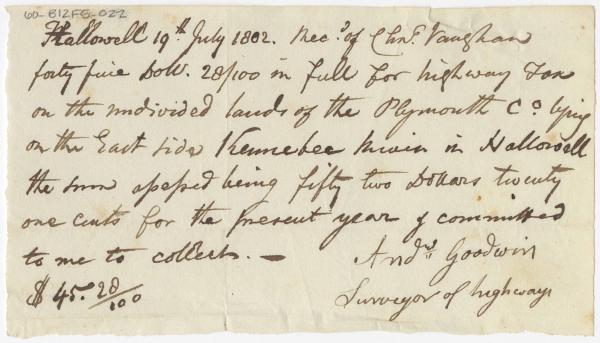 60-B12F6-022
Hallowell 19th July 1802. Rec.d of Cha.s Vaughan
forty five Doll. 28/100 in full for highway Tax
on the undivided lands of the Plymouth Co. lying
on the East side Kennebec River in Hallowell
the sum assessed being fifty two Dollars twenty
one cents for the present year & committed
to me to collect. —
And.w Goodwin
$ 45. 28/100
Surveyor of highways